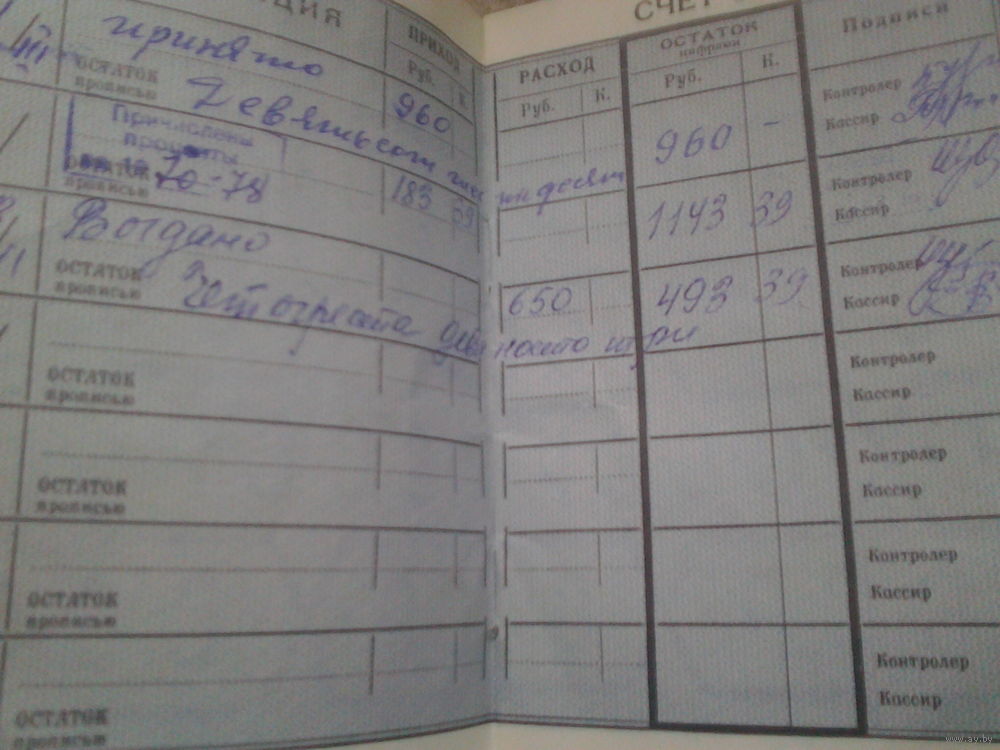 СЧЕТ
ПРИХОД РАСХОД ОСТАТОК Подписи
цифрами
Руб. К. Руб. К. Руб. К.
принято 960 960 - Контролер
ОСТАТОК Девятьсот шестьдесят Кассир
прописью
Причислены
проценты
183 39 1143 39 Контролер
ОСТАТОК 70-78 Кассир
прописью
Выдано 650 493 39 Контролер
ОСТАТОК Четыреста девяносто три Кассир
прописью
Контролер
ОСТАТОК Кассир
прописью
Контролер
ОСТАТОК Кассир
прописью
Контролер
ОСТАТОК Кассир
прописью
Контролер
ОСТАТОК Кассир
www.av.by